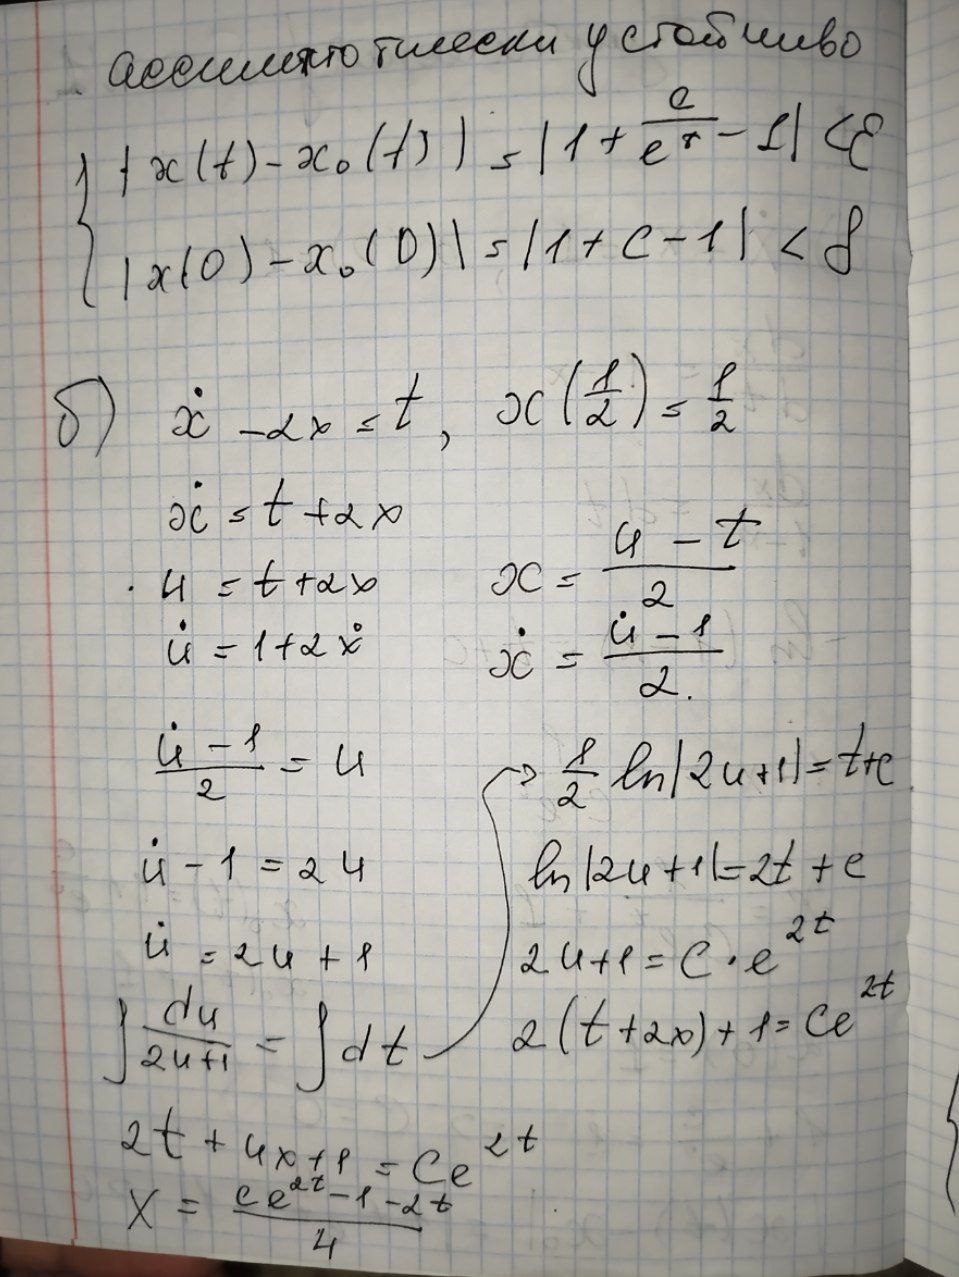 ассимптотически устойчиво
{ |x(t) - x₀(t)| = |1 + c/eᵗ - 1| < ε
|x(0) - x₀(0)| = |1 + c - 1| < δ
б) ẋ - 2x = t, x(1/2) = 1/2
ẋ = t + 2x
u = t + 2x x = (u - t)/2
u̇ = 1 + 2ẋ ẋ = (u̇ - 1)/2.
(u̇ - 1)/2 = u → 1/2 ln|2u+1| = t+c
u̇ - 1 = 2u ln|2u+1| = 2t + c
u̇ = 2u + 1 2u+1 = C · e^{2t}
∫ du/(2u+1) = ∫ dt 2(t+2x)+1 = Ce^{2t}
2t + 4x + 1 = Ce^{2t}
x = (ce^{2t} - 1 - 2t)/4